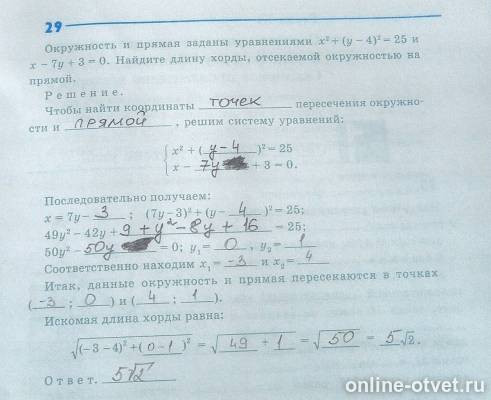 29
Окружность и прямая заданы уравнениями x² + (y − 4)² = 25 и
x − 7y + 3 = 0. Найдите длину хорды, отсекаемой окружностью на
прямой.
Решение.
Чтобы найти координаты точек пересечения окружно-
сти и прямой, решим систему уравнений:
x² + (y − 4)² = 25
x − 7y + 3 = 0.
Последовательно получаем:
x = 7y − 3; (7y − 3)² + (y − 4)² = 25;
49y² − 42y + 9 + y² − 8y + 16 = 25;
50y² − 50y = 0; y₁ = 0, y₂ = 1
Соответственно находим x₁ = −3 и x₂ = 4
Итак, данные окружность и прямая пересекаются в точках
(−3; 0) и (4; 1).
Искомая длина хорды равна:
√((−3 − 4)² + (0 − 1)²) = √(49 + 1) = √50 = 5√2.
Ответ. 5√2
online-otvet.ru